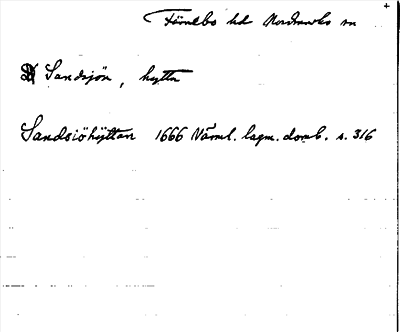 Färnebo hd Nordmarks sn
Sandsjön, hytta
Sandsiöhyttan 1666 Värml. lagm. domb. s. 316